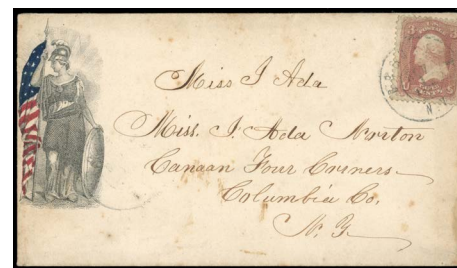 Miss J Ada
Miss. J. Ada Norton
Canaan Four Corners
Columbia Co,
N. Y.